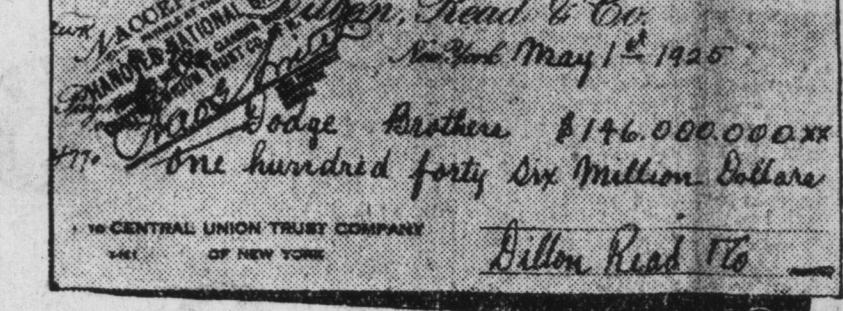 Dillon, Read & Co.
New York May 1st 1925
HANOVER NATIONAL
UNION TRUST CO. OF N.Y.
Dodge Brothers $146.000.000.xx
One hundred forty six Million Dollars
TO CENTRAL UNION TRUST COMPANY
OF NEW YORK
Dillon Read & Co